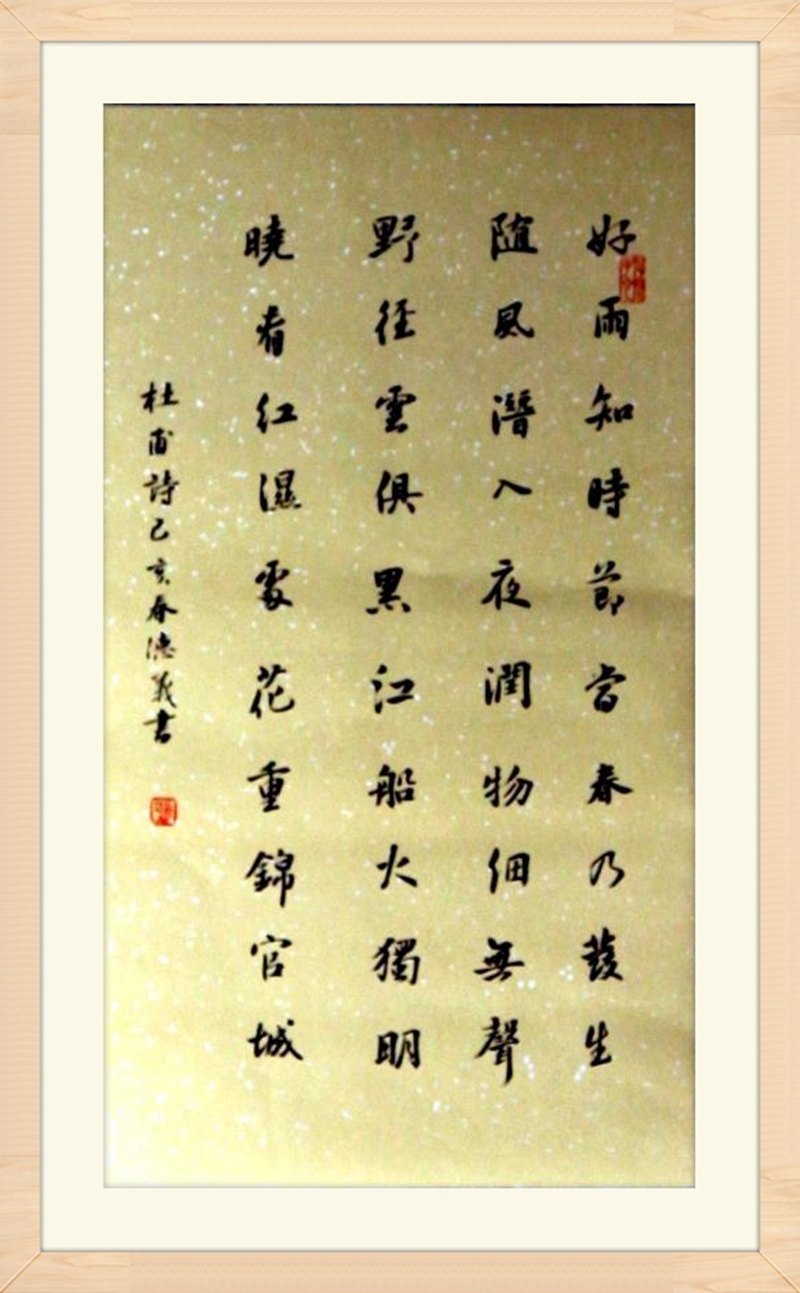 好雨知時節當春乃發生
隨風潛入夜潤物細無聲
野徑雲俱黑江船火獨明
曉看紅濕處花重錦官城
杜甫詩己亥春德義書